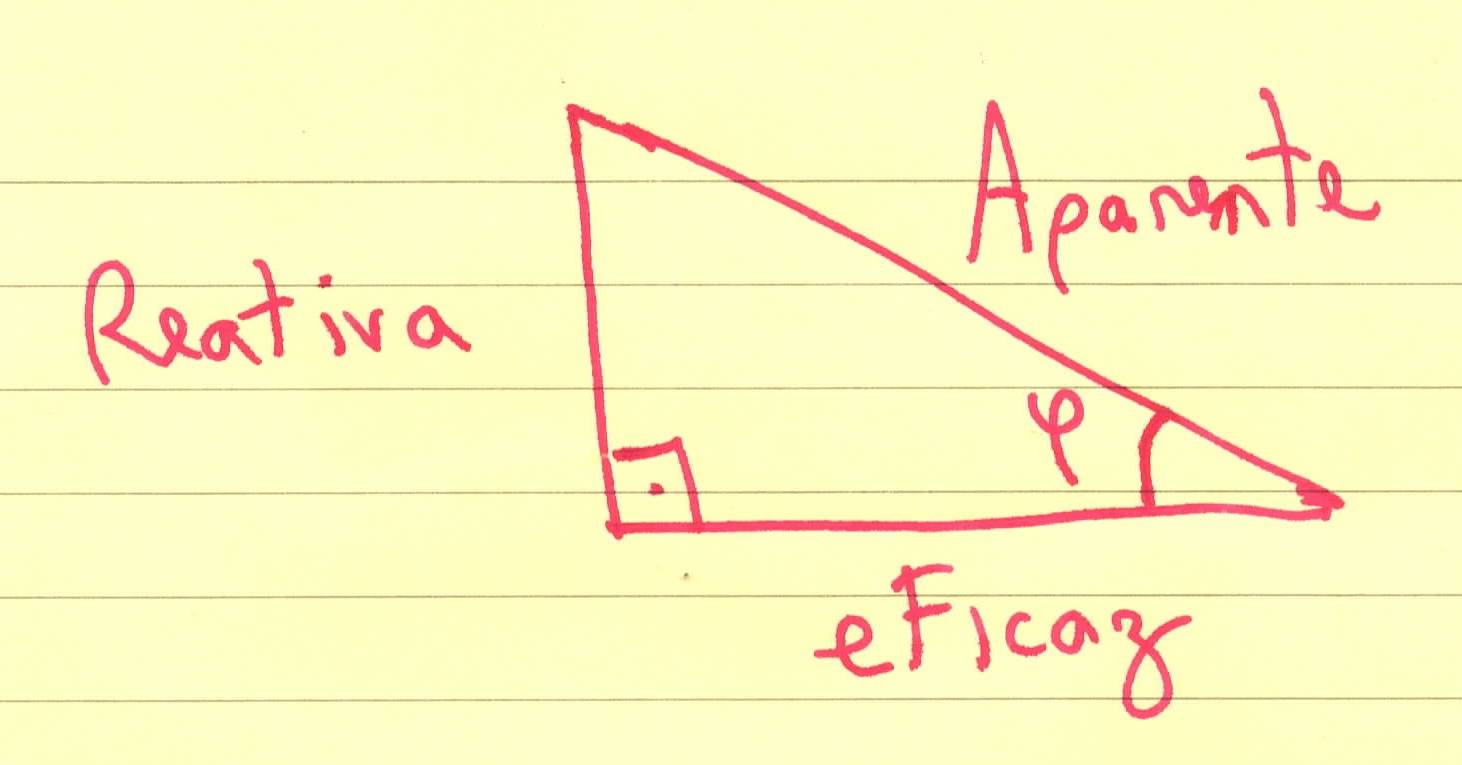 Aparente
Reativa
φ
eFicaz